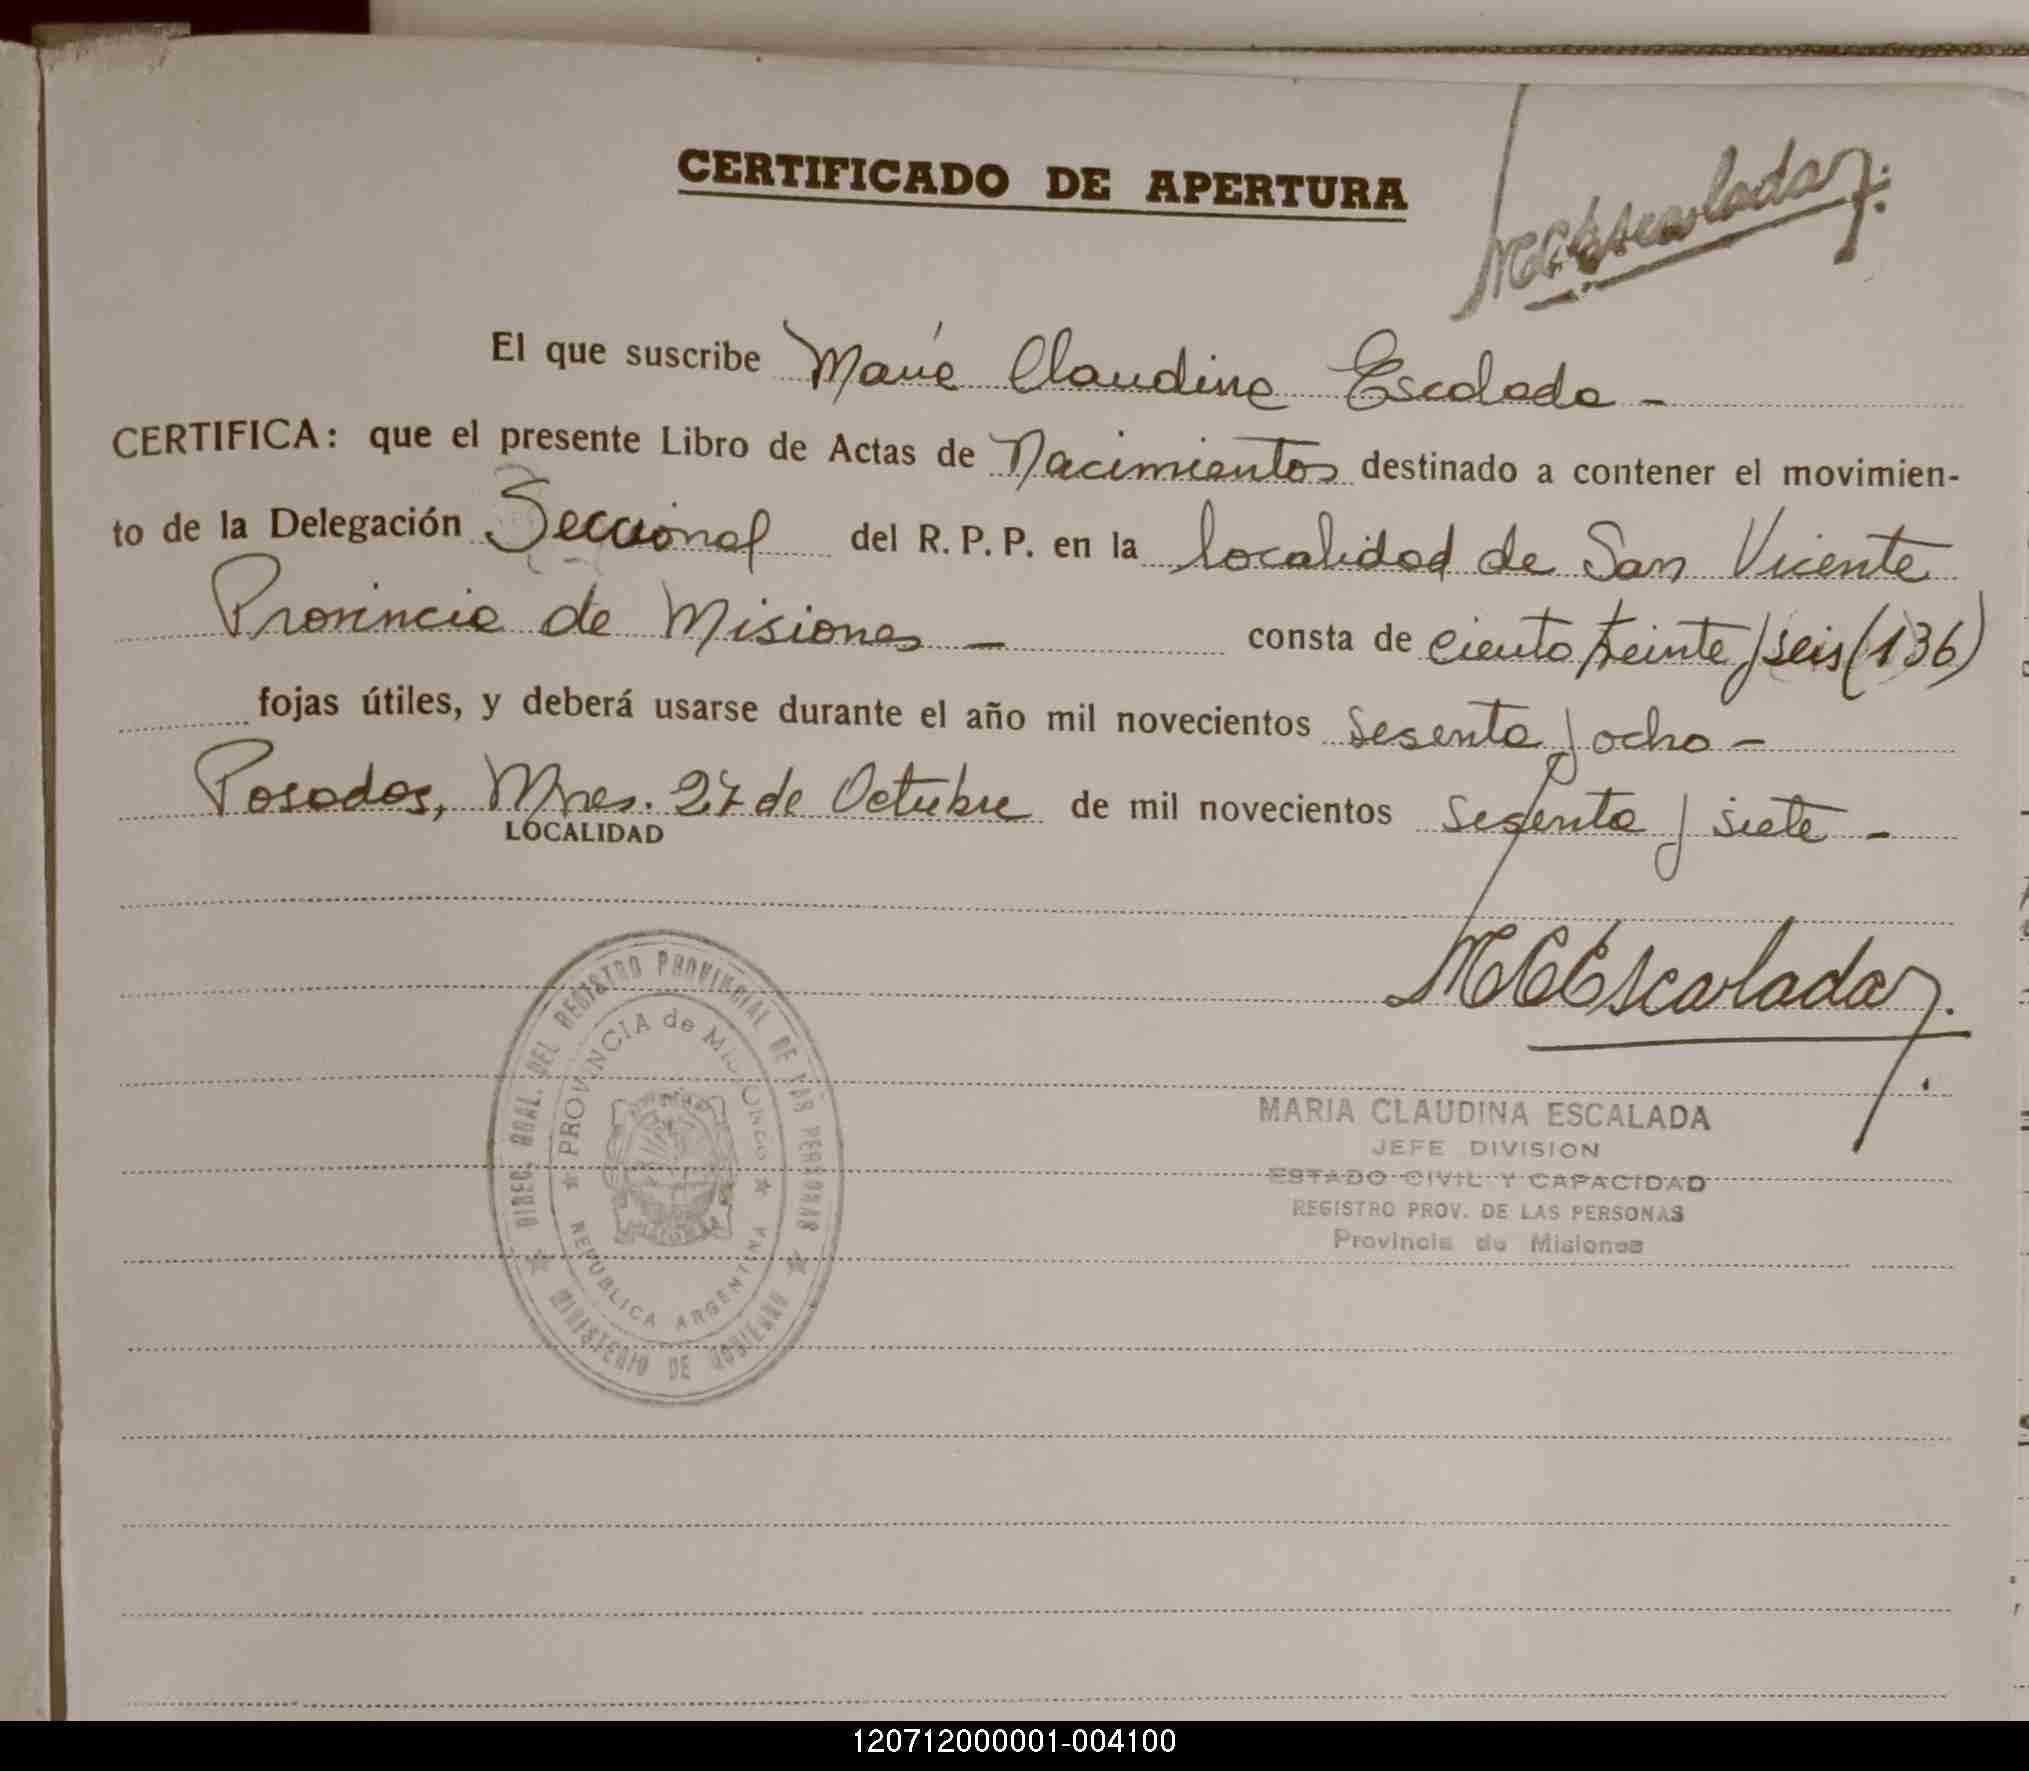 CERTIFICADO DE APERTURA
MCEscalada
El que suscribe María Claudina Escalada -
CERTIFICA: que el presente Libro de Actas de Nacimientos destinado a contener el movimien-
to de la Delegación Seccional del R. P. P. en la localidad de San Vicente
Provincia de Misiones - consta de ciento treinta y seis (136)
fojas útiles, y deberá usarse durante el año mil novecientos sesenta y ocho -
Posadas, Mnes. 27 de Octubre de mil novecientos sesenta y siete -
LOCALIDAD
MCEscalada
DIREC. GRAL. DEL REGISTRO PROVINCIAL DE LAS PERSONAS
PROVINCIA de MISIONES
REPUBLICA ARGENTINA
MINISTERIO DE GOBIERNO
MARIA CLAUDINA ESCALADA
JEFE DIVISION
ESTADO CIVIL Y CAPACIDAD
REGISTRO PROV. DE LAS PERSONAS
Provincia de Misiones
120712000001-004100